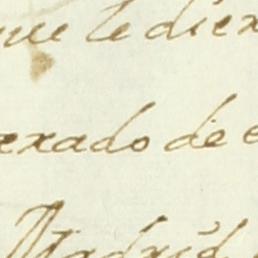 que le diex
exado de e
Madrid